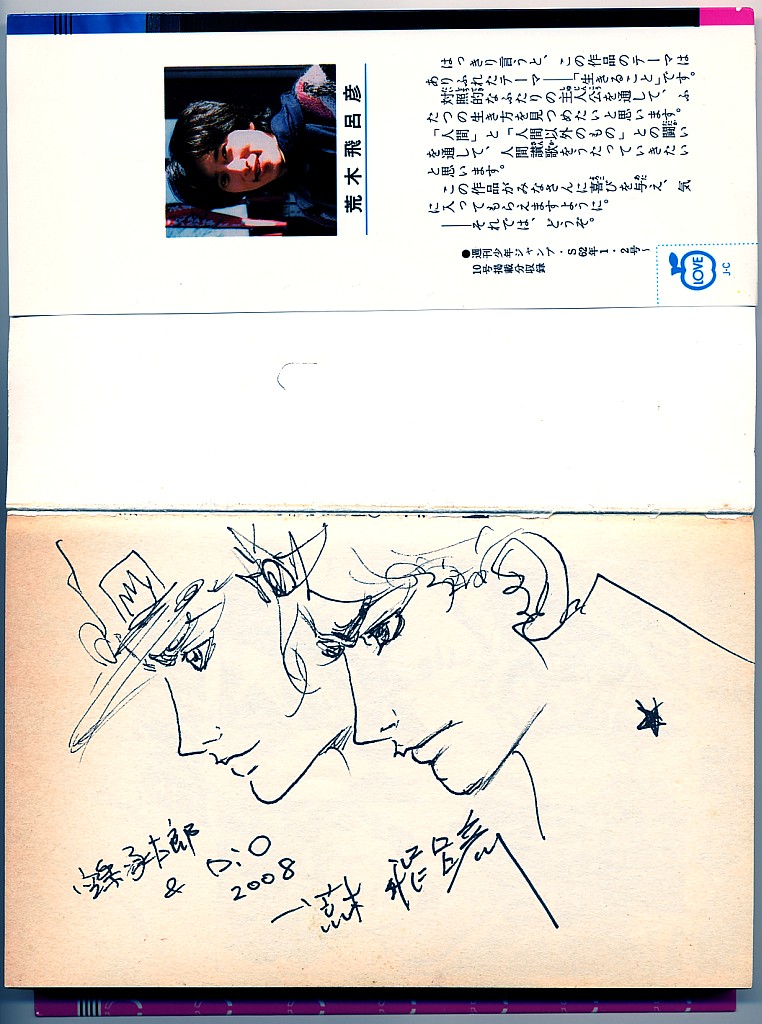 はっきり言うと、この作品のテーマは
ありふれたテーマ――「生きること」です。
対照的なふたりの主人公を通して、ふ
たつの生き方を見つめたいと思います。
「人間」と「人間以外のもの」との闘い
を通して、人間讃歌をうたっていきたい
と思います。
この作品がみなさんに喜びを与え、気
に入ってもらえますように。
――それでは、どうぞ。
荒木飛呂彦
●週刊少年ジャンプ・S62年1・2号〜
10号掲載分収録
LOVE
J・C
空条承太郎
& DiO
2008
荒木 飛呂彦